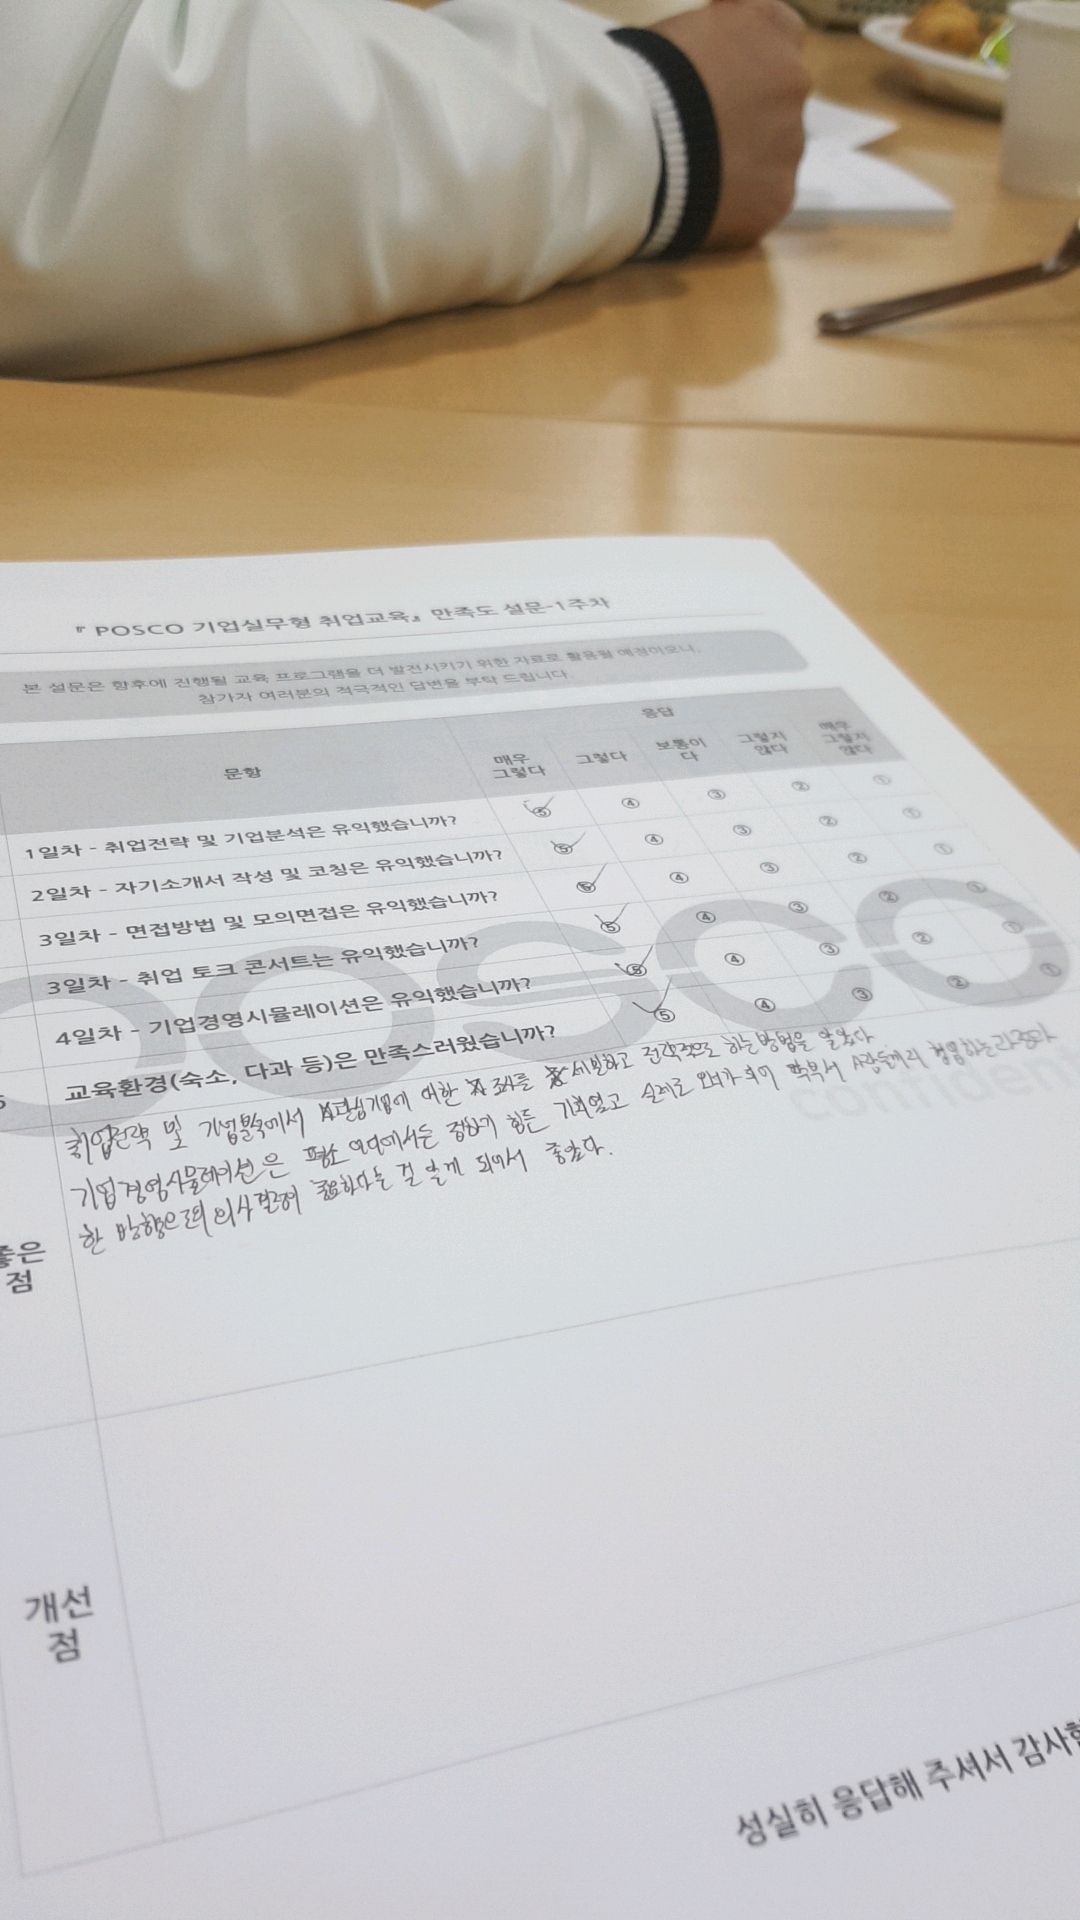 『POSCO 기업실무형 취업교육』 만족도 설문-1주차
본 설문은 향후에 진행될 교육 프로그램을 더 발전시키기 위한 자료로 활용될 예정이오니,
참가자 여러분의 적극적인 답변을 부탁 드립니다.
문항
응답
매우 그렇다
그렇다
보통이다
그렇지 않다
매우 그렇지 않다
1일차 - 취업전략 및 기업분석은 유익했습니까? ⑤ ④ ③ ② ①
2일차 - 자기소개서 작성 및 코칭은 유익했습니까? ⑤ ④ ③ ② ①
3일차 - 면접방법 및 모의면접은 유익했습니까? ⑤ ④ ③ ② ①
3일차 - 취업 토크 콘서트는 유익했습니까? ⑤ ④ ③ ② ①
4일차 - 기업경영시뮬레이션은 유익했습니까? ⑤ ④ ③ ② ①
교육환경(숙소, 다과 등)은 만족스러웠습니까? ⑤ ④ ③ ② ①
posco
좋은
점
취업전략 및 기업분석에서 관심기업에 대한 세분하고 전략적으로 하는 방법을 알았다
기업경영시뮬레이션은 평소 접하기 힘든 기회였고 실제로 하는
한 방향으로의 의사결정이 중요하다는 걸 알게 되어서 좋았다.
개선
점
성실히 응답해 주셔서